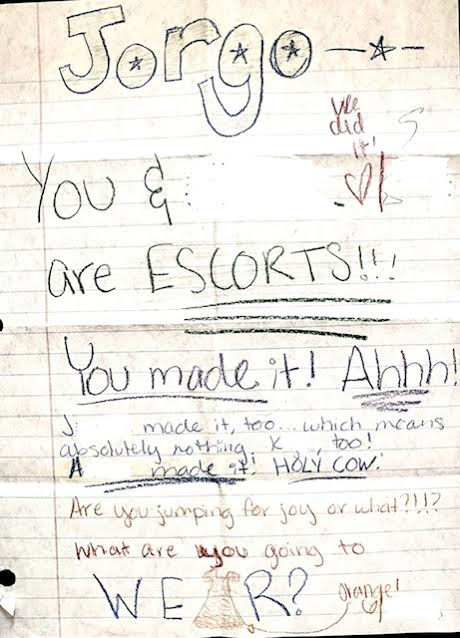 Jorgo
We
did
it!
You &
are ESCORTS!!!
You made it! Ahhh!
J made it, too... which means
absolutely nothing. K , too!
A made it! HOLY COW!
Are you jumping for joy or what?!!?
What are you going to
WE R?
orange!